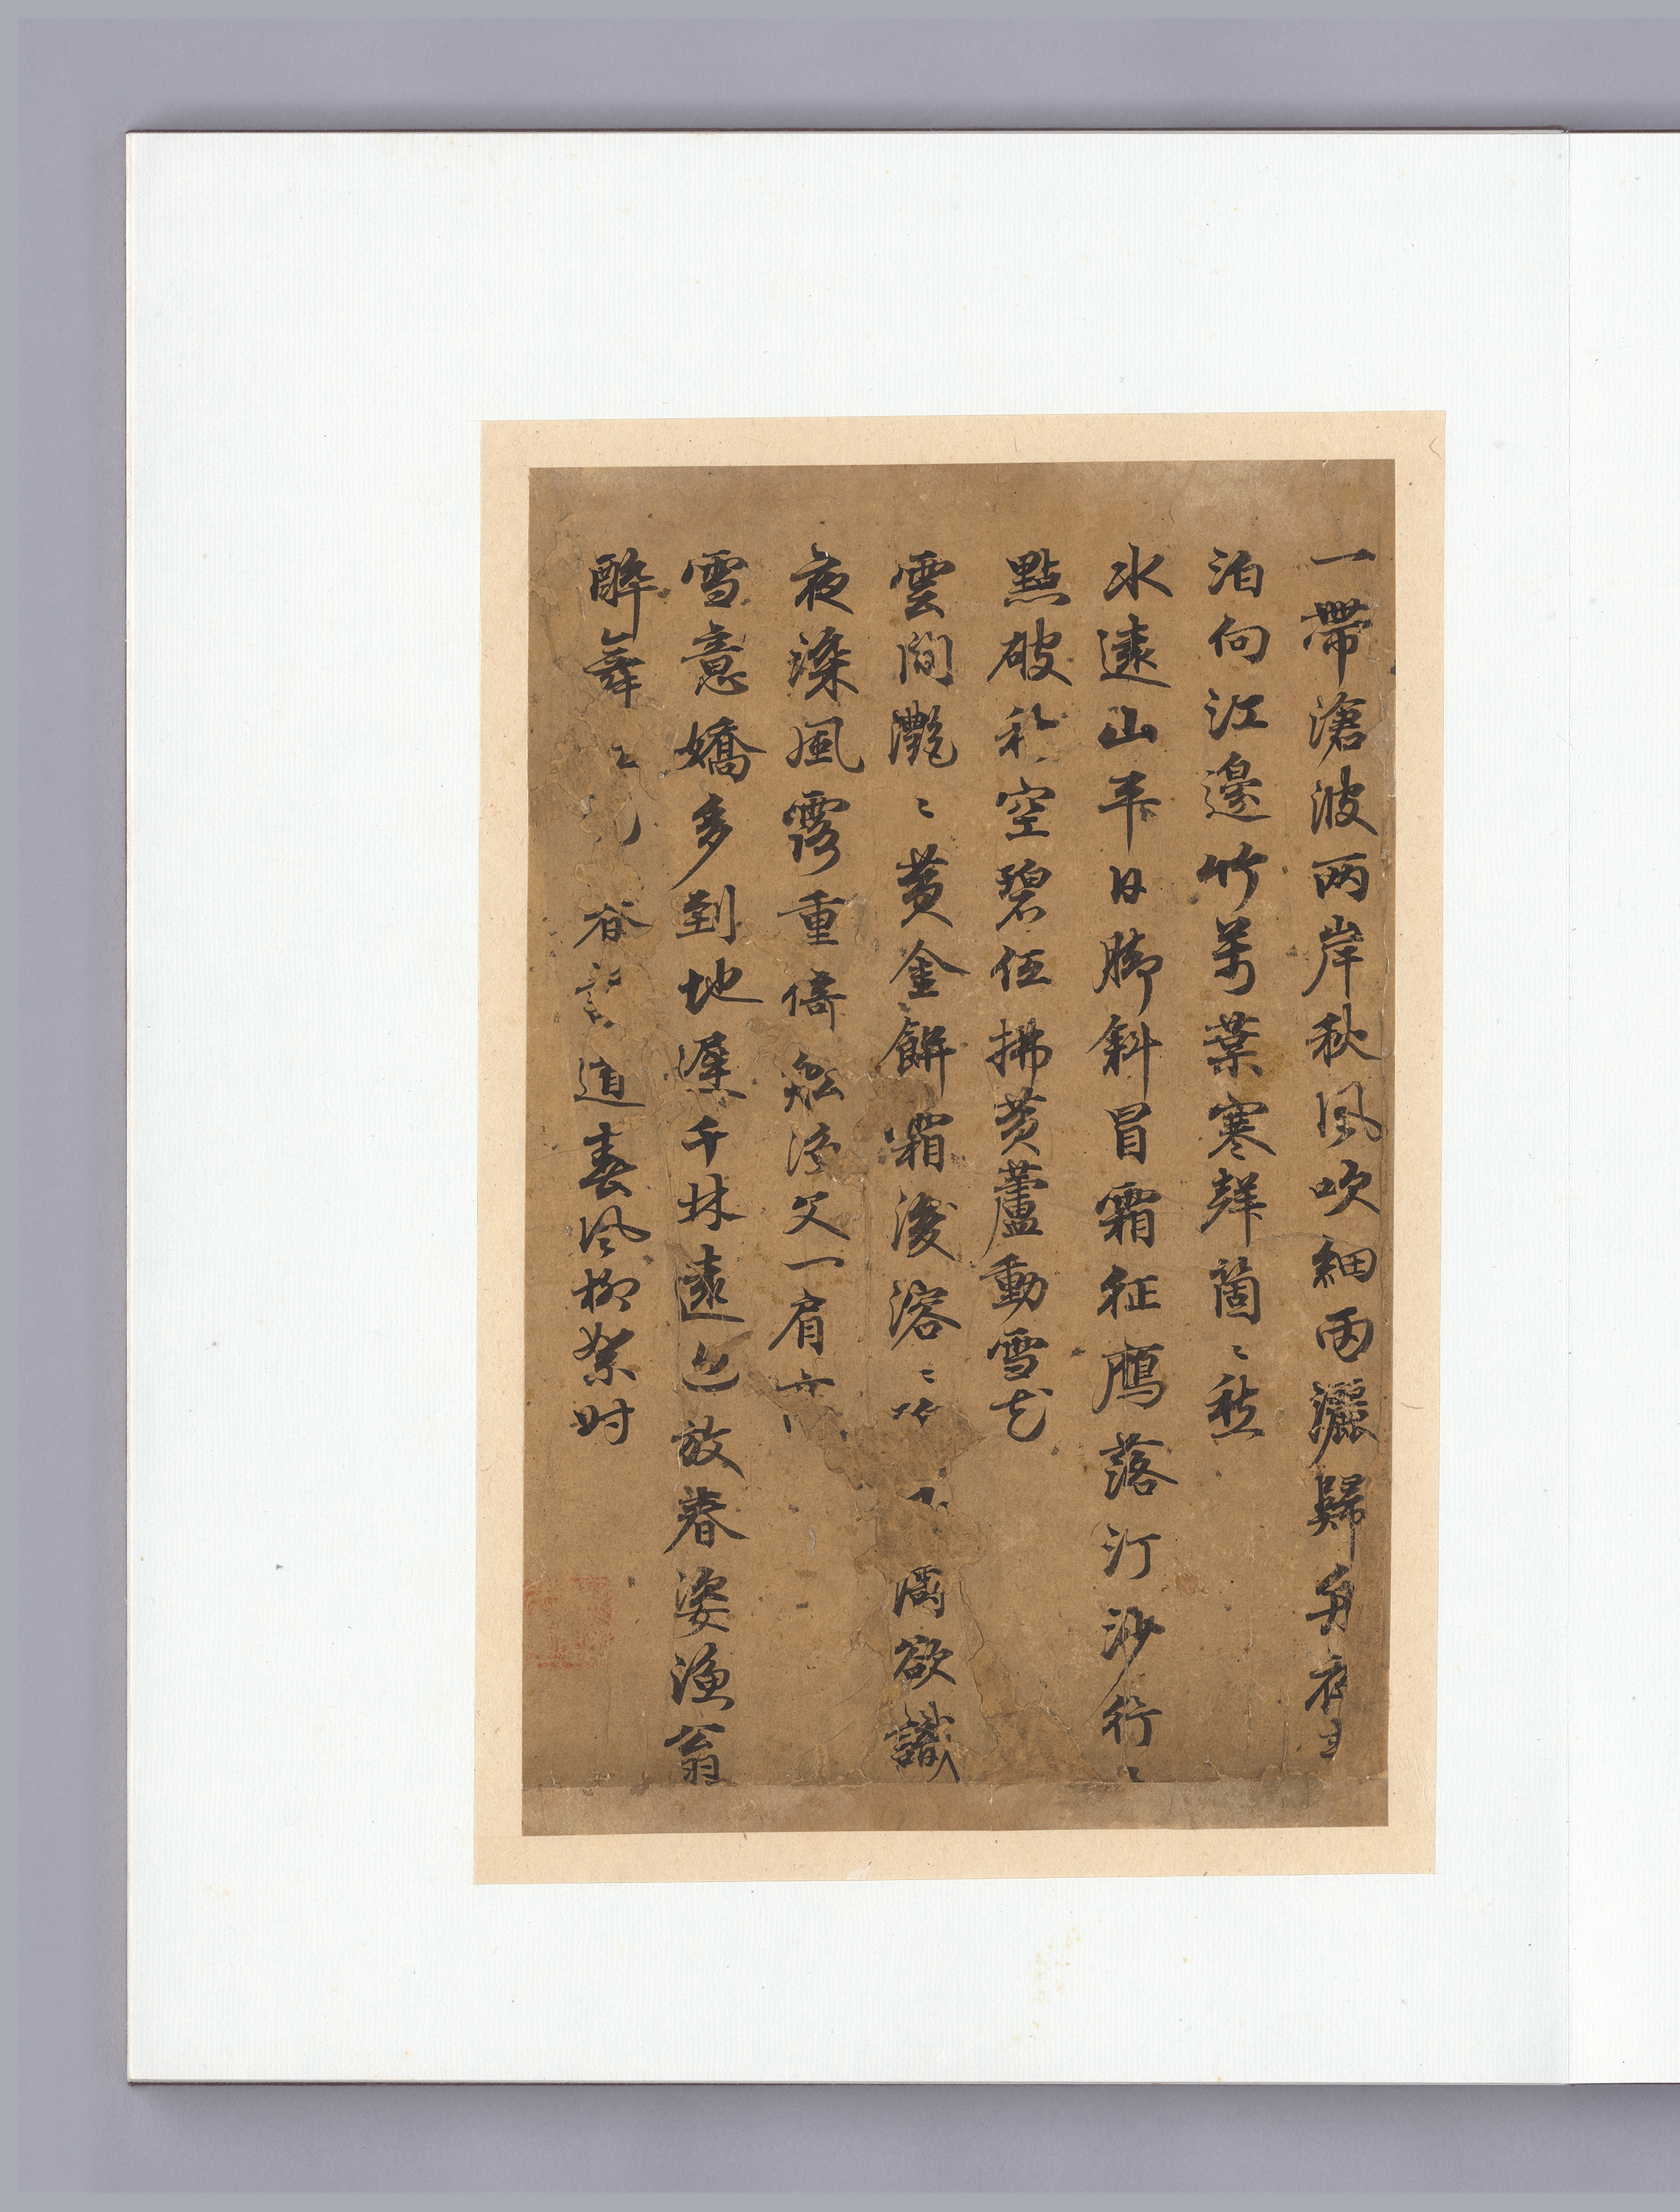 一帶滄波两岸秋風吹細雨灑歸舟夜
泊向江邊竹萬葉寒聲箇〻愁
水遠山平日脚斜冒霜征鴈落汀沙行〻
點破秋空碧低拂黄蘆動雪花
雲間灔〻黄金餅霜後溶〻濤欲識
夜深風露重倚舩漁父一肩
雪意嬌多到地遲千林遠近放春姿漁翁
醉舞道春風柳絮时